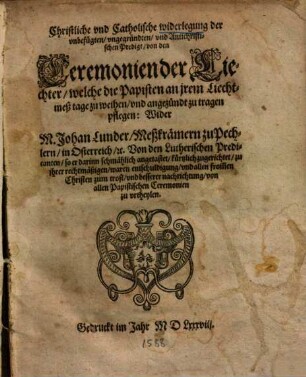 Christliche vnd Catholische widerlegung der
vnbefügten / vngegründten / vnd Antichristi-
schen Predigt / von den
Ceremonien der Lie-
chter / welche die Papisten an jrem Liecht-
meß tage zu weihen / vnd angezündt zu tragen
pflegen: Wider
M. Johan Lunder / Meßkrämern zu Pech-
lern / in Osterreich / ꝛc. Von den Lutherischen Predi-
canten / so er darinn schmählich angetastet / kürtzlich zugerichtet / zu
jhrer rechtmässigen / waren entschuldigung / vnd allen frommen
Christen zum trost / vnd besserer nachrichtung / von
allen Papistischen Ceremonien
zu vrtheylen.
Gedruckt im Jahr M D Lxxxviij.
1588